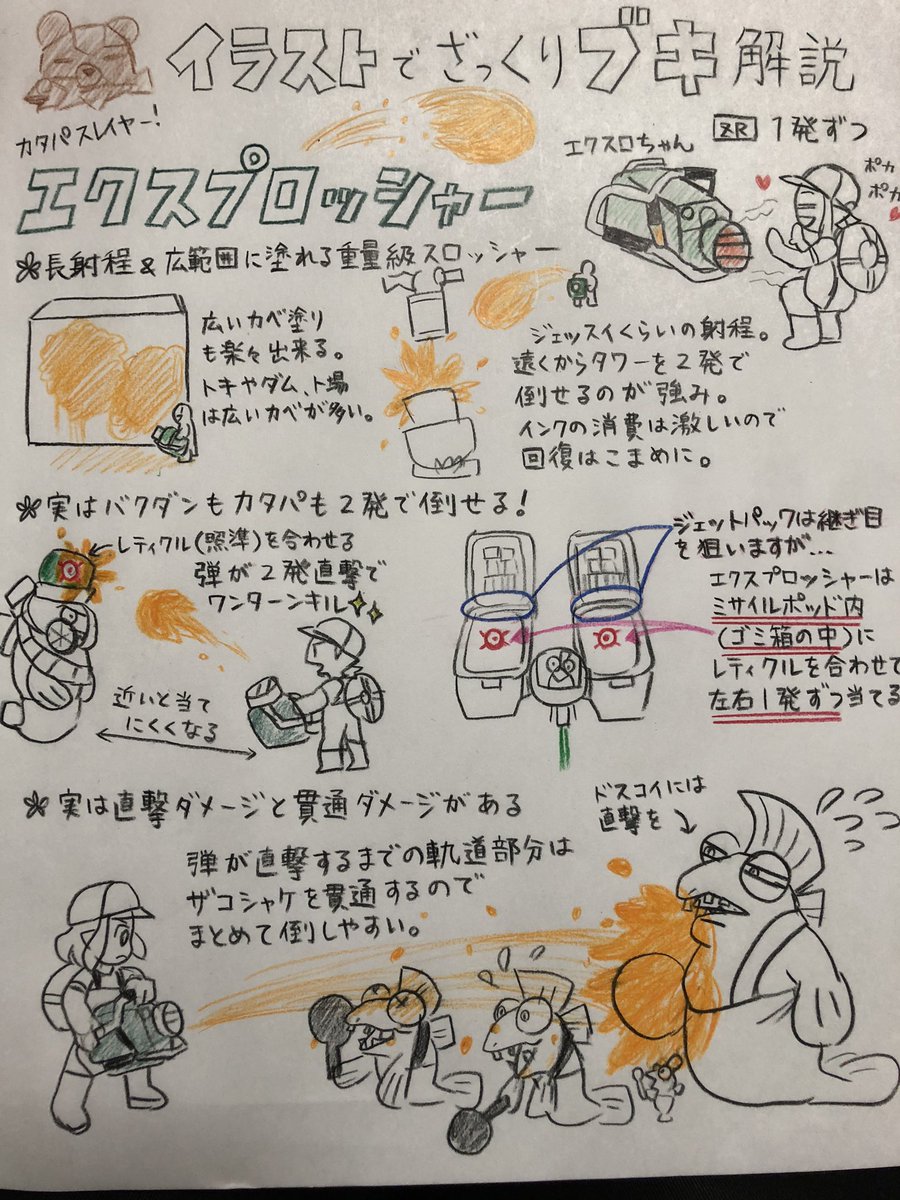 イラストでざっくりブキ解説
カタパスレイヤー!
エクスプロッシャー
エクスロちゃん
ZR 1発ずつ
ポカ
ポカ
✽長射程&広範囲に塗れる重量級スロッシャー
広いカベ塗り
も楽々出来る。
トキやダム、ト場
は広いカベが多い。
ジェッスイくらいの射程。
遠くからタワーを2発で
倒せるのが強み。
インクの消費は激しいので
回復はこまめに。
✽実はバクダンもカタパも2発で倒せる!
レティクル(照準)を合わせる
弾が2発直撃で
ワンターンキル
近いと当て
にくくなる
ジェットパックは継ぎ目
を狙いますが…
エクスプロッシャーは
ミサイルポッド内
(ゴミ箱の中)に
レティクルを合わせて
左右1発ずつ当てる
✽実は直撃ダメージと貫通ダメージがある
弾が直撃するまでの軌道部分は
ザコシャケを貫通するので
まとめて倒しやすい。
ドスコイには
直撃を